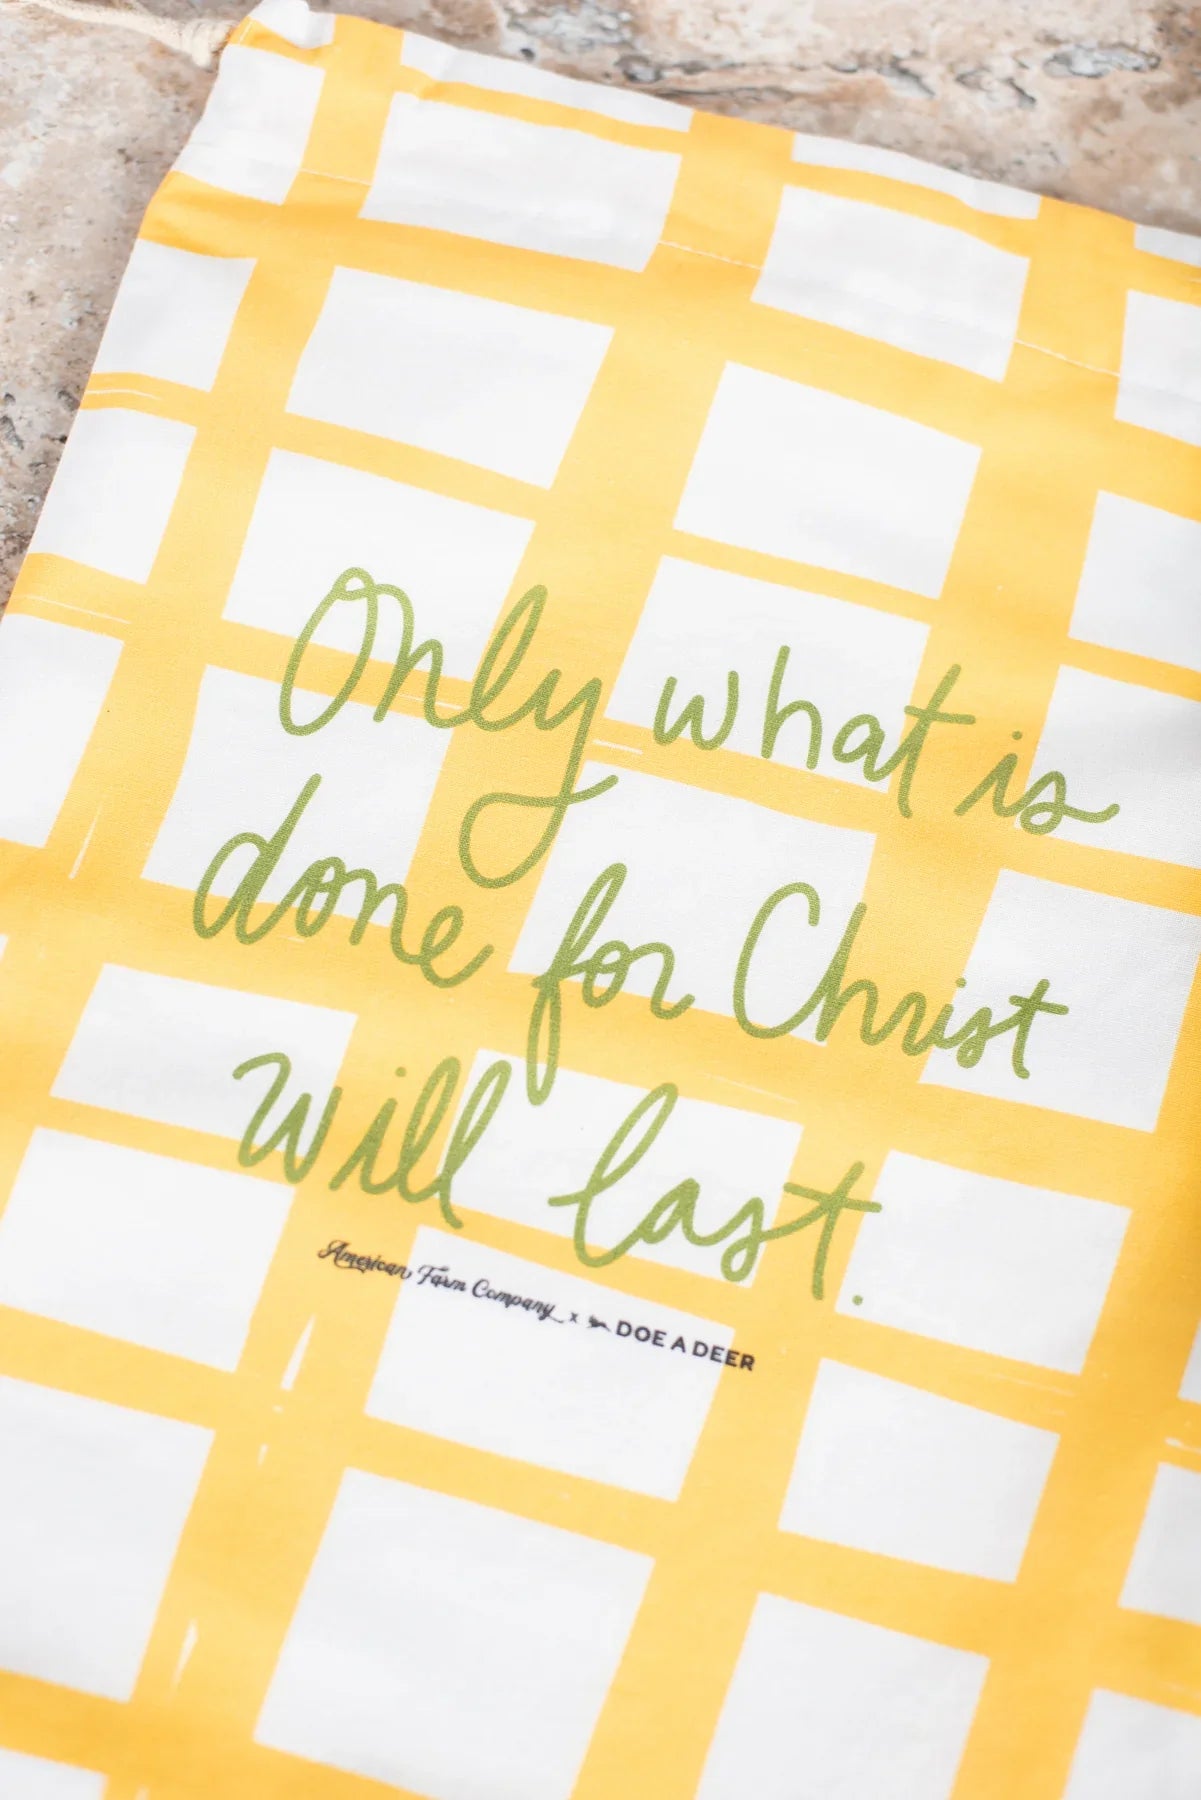 Only what is
done for Christ
will last.
American Farm Company x DOE A DEER